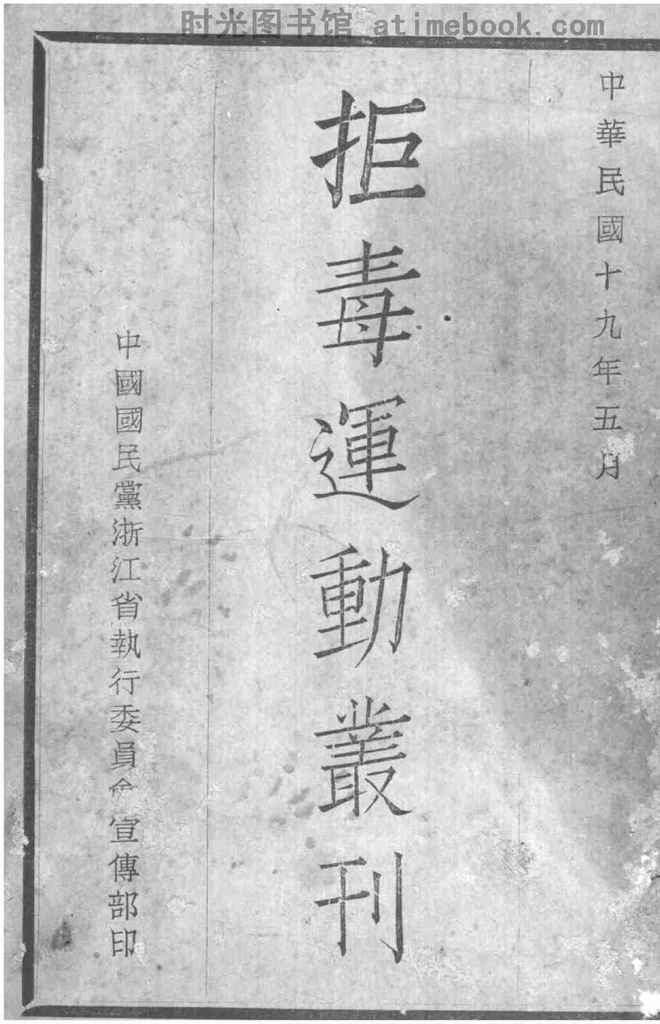 时光图书馆 atimebook.com
中華民國十九年五月
拒毒運動叢刊
中國國民黨浙江省執行委員會宣傳部印